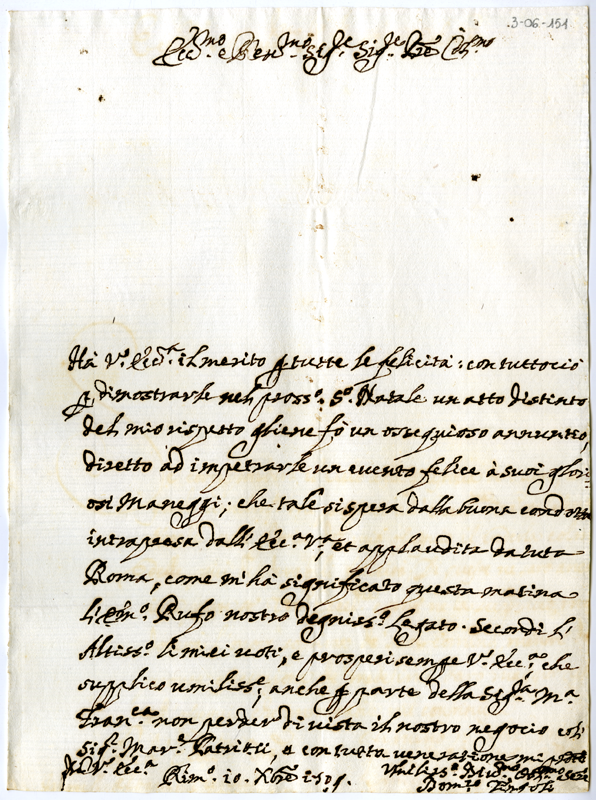 3-06.-151
Ecc.mo e Rev.mo Sig.re Sig.re P.rone Col.mo
Hà V.a Ecc.a il merito p tutte le felicità: contuttociò
p dimostrarle nel pross.o S.o Natale un atto distinto
del mio rispetto gliene fò un ossequioso annuntio,
diretto ad impetrarle un evento felice à suoi glori-
osi Maneggi; che tale si spera dalla buona condotta
intrapresa dall' Ecc.a V.a, et applaudita da tuta
Roma, come m'hà significato questa matina
l' Em.o Rufo nostro degniss.o Legato. Secondi l'
Altiss.o li miei voti, e prosperi sempre V.a Ecc.a, che
supplico umiliss.e, anche p parte della Sig.ra M.a
Fran.ca non perder di vista il nostro negocio col
Sig.r Mar.e Patritii, e con tutta veneratione mi
Di V.a Ecc.a
Rim.o 10. Xbre
Umiliss.o